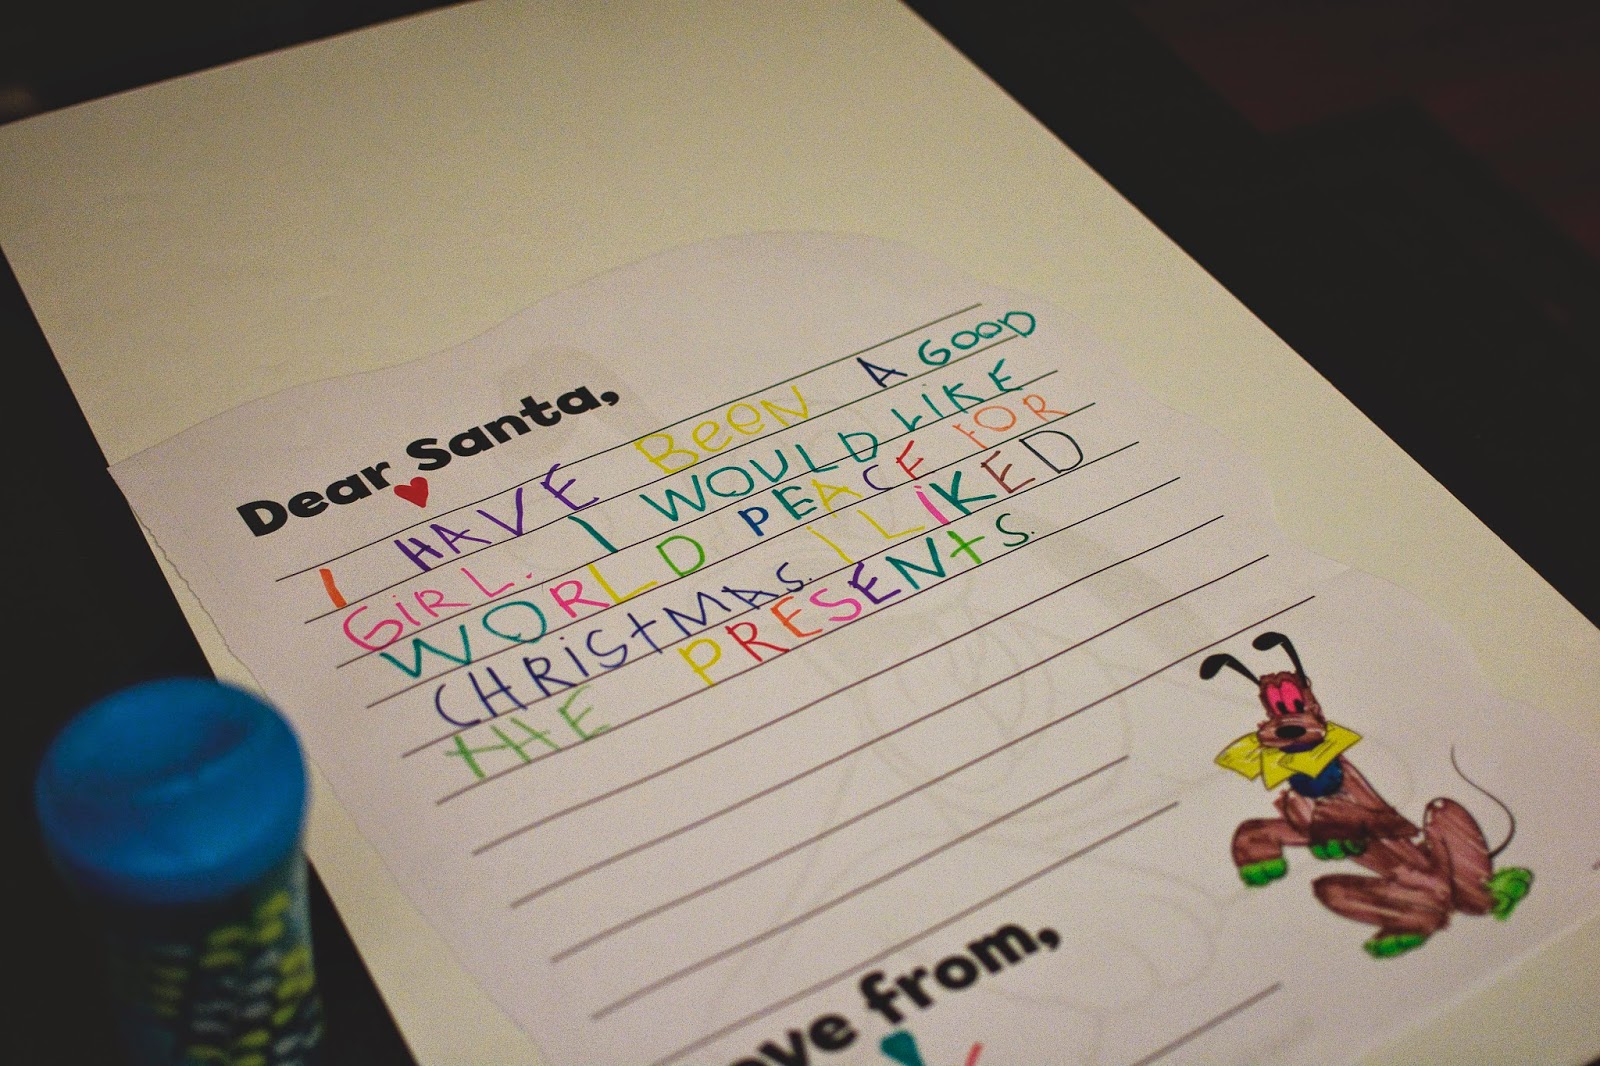 Dear Santa,
I HAVE BeeN A GOOD
GiRL. I WOULD LiKE
WORLD PEACE FOR
CHRiStMAS. I LiKED
tHE PRESENtS.
ove from,